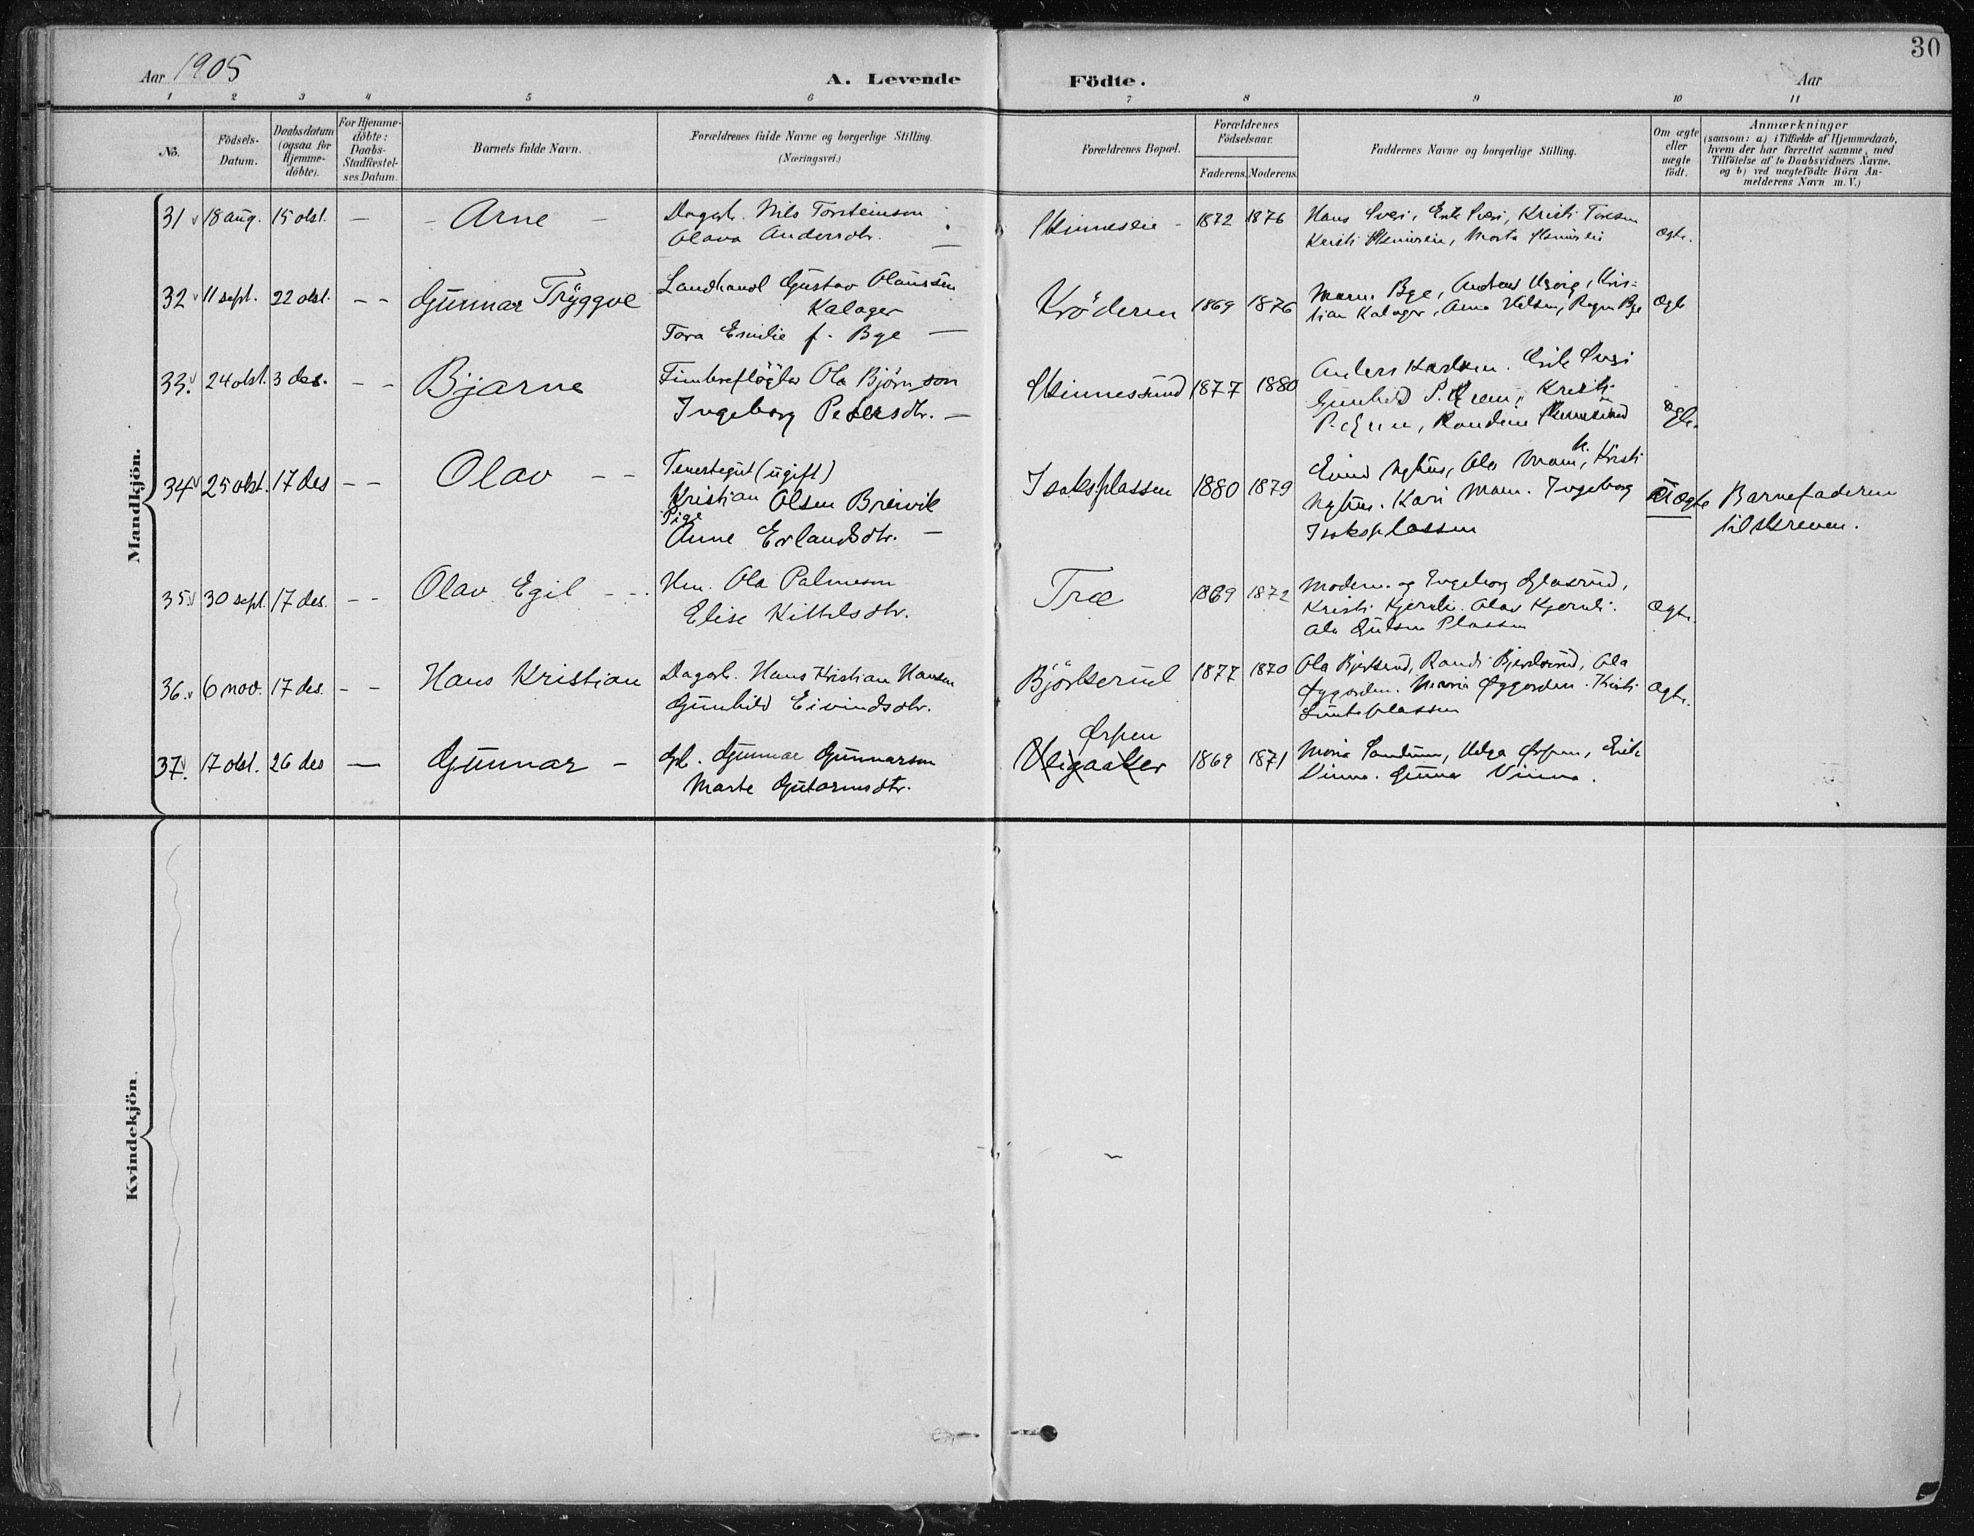 30
Aar 1905
A. Levende Födte.
Aar
1 2 3 4 5 6 7 8 9 10 11
Nö.
Födsels-
Datum.
Daabsdatum
(ogsaa for
Hjemme-
döbte).
For Hjemme-
döbte:
Daabs-
Stadfæstel-
ses Datum.
Barnets fulde Navn.
Forældrenes fulde Navne og borgerlige Stilling.
(Næringsvei.)
Forældrenes Bopæl.
Forældrenes
Födselsaar.
Faderens. Moderens.
Faddernes Navne og borgerlige Stilling.
Om ægte
eller
uægte
födt.
Anmærkninger
(saasom: a) i Tilfælde af Hjemmedaab,
hvem der har forrettet samme, med
Tilföielse af to Daabsvidners Navne.
og b) ved uægtefödte Börn An-
melderens Navn m. V.)
Mandkjön.
31 18 aug. 15 okt. — - Arne -
Dagarb. Nils Torsteinson
Olava Andersdtr. —
1872 1876
Kristi
Ægte.
32 11 sept. 22 okt. - - Gunnar Tryggve
Landhandl Gustav Olaussen
Kalager
Tora Emilie f. Bye —
Kröderen 1869 1876
Bye, Kris-
tian Kalager, Anna
Ægte
33. 24 okt. 3 des. - - Bjarne
Ola Björnson
Ingeborg Pedersdtr. —
Skinnessund 1877 1880
Anders Karlsen. Erik
Gunhild Kristi
Randine Skinnessund
Ægte.
34 25 okt. 17 des - - Olav - -
Tenestegut (ugift)
Kristian Olsen Breivik
Pige
Anne Erlandsdtr. —
Isaksplassen 1880 1879
Eivind Nyhus, Ola Kristi
Nyhus. Kari Ingeborg
Isaksplassen
Uægte
Barnefaderen
tilskreven.
35 30 sept. 17 des. - - Olav Egil - -
Ola Palmeson
Elise Kittelsdtr.
Træ 1869 1872
Modern. og Ingeborg Glasrud,
Kristi Kjernli. Olav Kjernli.
Ola Plassen
Ægte.
36. 6 nov. 17 des. - - Hans Kristian
Dagarb. Hans Kristian Hansen
Gunhild Eivindsdtr.
Björkerud 1877 1870
Ola Björkerud, Randi Björkerud, Ola
Øygorden. Maria Øygorden. Kristi
Ægte.
37. 17 okt. 26 des — Gunnar -
Gunnar Gunnarson
Marte Gutormsdtr.
Ørpen
1869 1871
Maria Helga Ørpen, Erik
Vinna. Gunnar Vinna.
Kvindekjön.